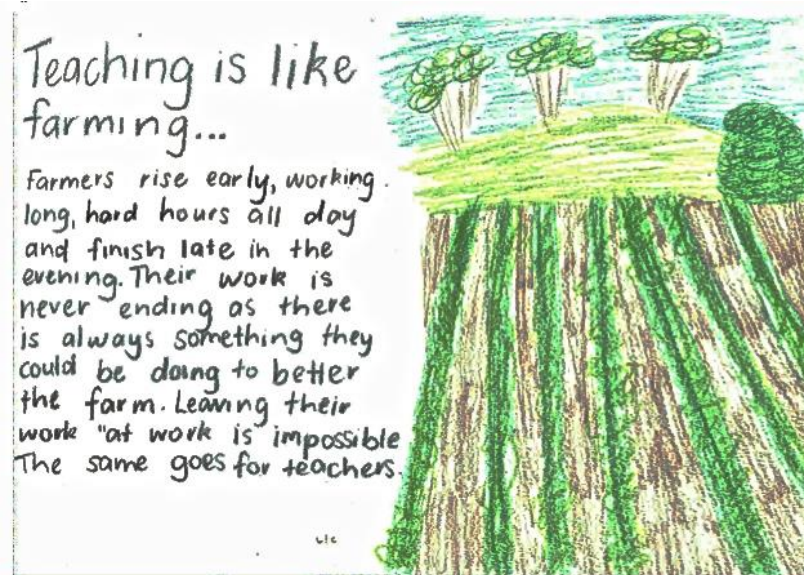 Teaching is like
farming...
Farmers rise early, working
long, hard hours all day
and finish late in the
evening. Their work is
never ending as there
is always something they
could be doing to better
the farm. Leaving their
work "at work is impossible
The same goes for teachers.